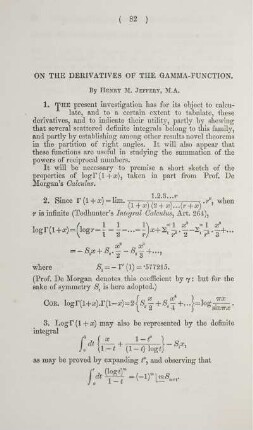 ( 82 )
ON THE DERIVATIVES OF THE GAMMA-FUNCTION.
By HENRY M. JEFFERY, M.A.
1. THE present investigation has for its object to calcu-
late, and to a certain extent to tabulate, these
derivatives, and to indicate their utility, partly by shewing
that several scattered definite integrals belong to this family,
and partly by establishing among other results novel theorems
in the partition of right angles. It will also appear that
these functions are useful in studying the summation of the
powers of reciprocal numbers.
It will be necessary to premise a short sketch of the
properties of logΓ(1+x), taken in part from Prof. De
Morgan's Calculus.
2. Since Γ(1+x) = lim. 1.2.3...r / (1+x)(2+x)...(r+x) . rˣ, when
r is infinite (Todhunter's Integral Calculus, Art. 264),
logΓ(1+x) = {log r − 1/1 − 1/2 − ... − 1/r} x + Σ 1/r² . x²/2 − Σ 1/r³ . x³/3 + ...
= − S₁x + S₂ x²/2 − S₃ x³/3 + ...,
where S₁ = − Γ′(1) = ·577215.
(Prof. De Morgan denotes this coefficient by γ: but for the
sake of symmetry S₁ is here adopted.)
COR. logΓ(1+x).Γ(1−x) = 2{S₂ x²/2 + S₄ x⁴/4 + ...} = log πx/sinπx.
3. LogΓ(1+x) may also be represented by the definite
integral
∫₀¹ dt {x/(1−t) + (1−tˣ)/((1−t) log t)} − S₁x,
as may be proved by expanding tˣ, and observing that
∫₀¹ dt (log t)ᵐ/(1−t) = (−1)ᵐ |m Sₘ₊₁.